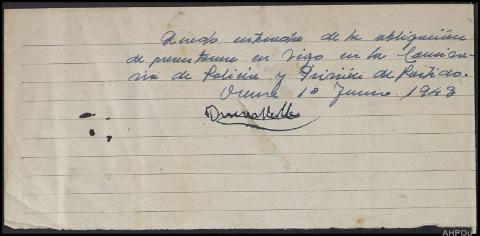 Quedo enterado de la obligación
de presentarme en Vigo en la Comisa-
ria de Policia y Prisión de Partido.
Orense 18 Junio 1943
AHPOu